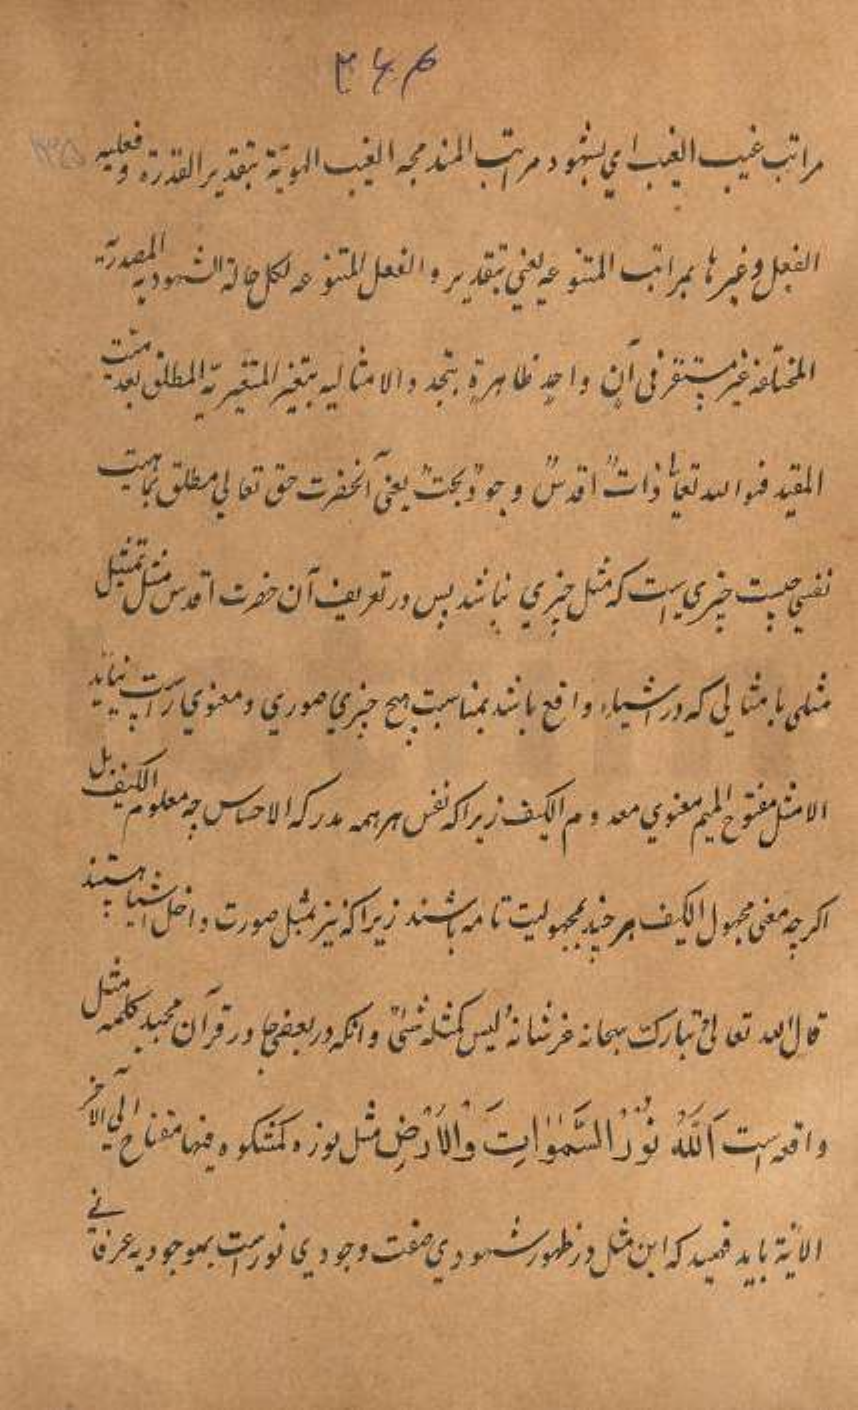 ۳۶۴
مراتب غیب الغیب ای بشهود مراتب المندمجه الغیب الهویّة بتقدیر القدرة و فعلیه
الفعل و غیرها بمراتب المتنوعیه یعنی بتقدیر و الفعل المتنوعه لکل حالة الشهودیه المصدریّة
المختلفه غیر مستقر فی آنٍ واحدٍ ظاهرةٍ بتجدد الامثالیه بتغیر المتغیریّة المطلق بعدمیّت
المقید فهو الله تعالیٰ ذاتٌ اقدسٌ وجودٌ بحتٌ یعنی آنحضرت حق تعالی مطلق بماهیت
نفسی چیست چیزی است که مثل چیزی نباشد پس در تعریف آن حضرت اقدس مثل تمثیل
مثلی یا مثالی که در اشیاء واقع باشد بمناسبت هیچ چیزی صوری و معنوی راست نیاید
الا مثل مفتوح المیم معنوی معدوم الکیف زیرا که نفس هر همه مدرکه الاحساس چه معلوم الکیف بل
اکرچه معنی مجهول الکیف هر چند بمجهولیت تامه باشند زیرا که نیز بمثل صورت داخل اشیا هستند
قال الله تعالیٰ تبارک سبحانه عز شانهُ لیس کمثله شئیٌ و انکه در بعضی جا در قرآن مجید کلمه مثل
واقعه است اَللّٰهُ نُوْرُ السَّمٰوٰاتِ وَالْاَرْضِ مثل نوره کمشکوه فیها مفتاح الی الآخر
الایٔة باید فهمید که این مثل در ظهور شهودی صفت وجودی نور است بموجودیه عرفانی